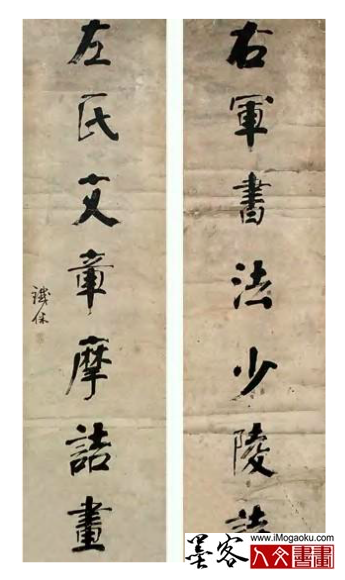 右軍書法少陵詩
左氏文章摩詰畫
鐵保
墨客
www.iMogaoku.com
人文書畫